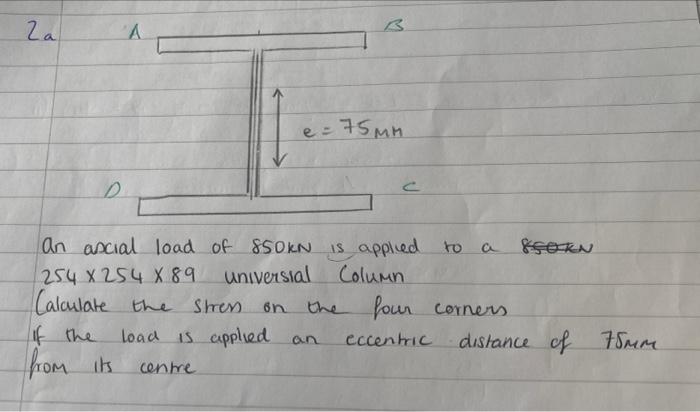 2a A B
e = 75mm
D C
An axcial load of 850KN is applied to a 850KN
254 x 254 x 89 universial Column
Calculate the stress on the four corners
If the load is applied an eccentric distance of 75mm
from its centre